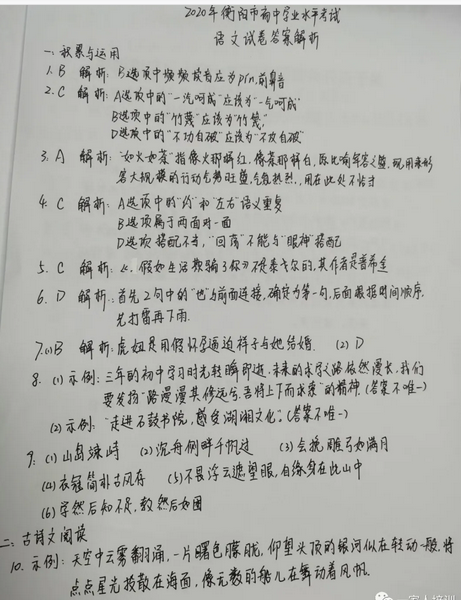 2020年衡阳市初中学业水平考试
语文试卷答案解析
一、积累与运用
1. B 解析: B选项中频频读音应为pín,前鼻音
2. C 解析: A选项中的"一汽呵成"应该为"一气呵成"
B选项中的"竹
D选项中的"不功自破"应该为"不攻自破"
3. A 解析: "如火如荼"指像火那样红,像荼那样白,原比喻军容之盛,现用来形
容大规模的行动气势旺盛,气氛热烈.,用在此处不恰当
4. C 解析: A选项中的"约"和"左右"语义重复
B选项属于两面对一面
D选项搭配不当,"回荡"不能与"眼神"搭配
5. C 解析: 《假如生活欺骗了你》不是泰戈尔的,其作者是普希金
6. D 解析: 首先2句中的"也"与前面连接,确定为第一句,后面根据时间顺序,
先打雷再下雨.
7.(1)B 解析: 虎妞是用假怀孕逼迫祥子与她结婚. (2) D
8. (1) 示例: 三年的初中学习时光转瞬即逝.未来的求学之路依然漫长,我们
要发扬"路漫漫其修远兮,吾将上下而求索"的精神.(答案不唯一)
(2) 示例: "走进石鼓书院,感受湖湘文化."(答案不唯一)
9: (1) 山岛竦峙 (2) 沉舟侧畔千帆过 (3) 会挽雕弓如满月
(4) 衣冠简朴古风存 (5) 不畏浮云遮望眼,自缘身在此山中
(6) 学然后知不足,教然后知困
二: 古诗文阅读
10. 示例: 天空中云雾翻涌,一片曙色朦胧,仰望头顶的银河似在转动一般,将
点点星光投散在海面,像无数的船儿在舞动着风帆.
一家人培训